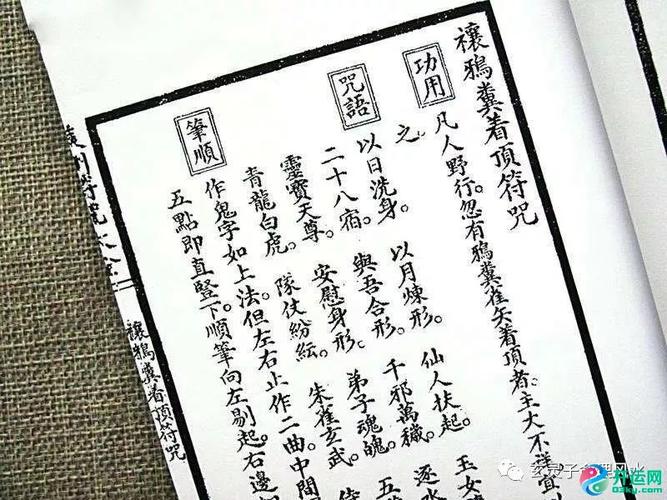 禳鴉糞着頂符咒
功用
凡人野行。忽有鴉糞雀矢着頂者。主大不祥。宜
之
咒語
以日洗身。以月煉形。仙人扶起。玉女
二十八宿。與吾合形。千邪萬穢。逐水
靈寶天尊。安慰身形。弟子魂魄。五
青龍白虎。隊仗紛紜。朱雀玄武。
筆順
作鬼字如上法。但左右止作二曲。中間
五點即直豎下。順筆向左剔起。右邊
符咒大全
禳鴉糞着頂符咒
玄灵子命理风水
开运网